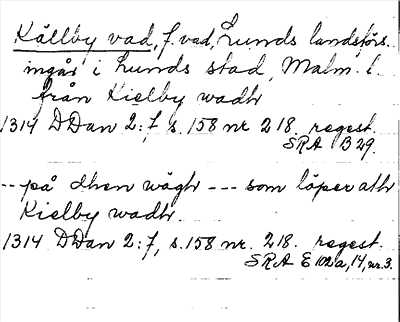 Källby vad, f. vad, Lunds landsförs.
ingår i Lunds stad, Malm. l.
från Kielby wadh
1314 DDan 2:7 s. 158 nr 218. regest.
SRA B 29.
--- på dhen wägh --- som löper ath
Kielby wadh.
1314 DDan 2:7, s. 158 nr. 218. regest.
SRA E 102a, 14, nr. 3.